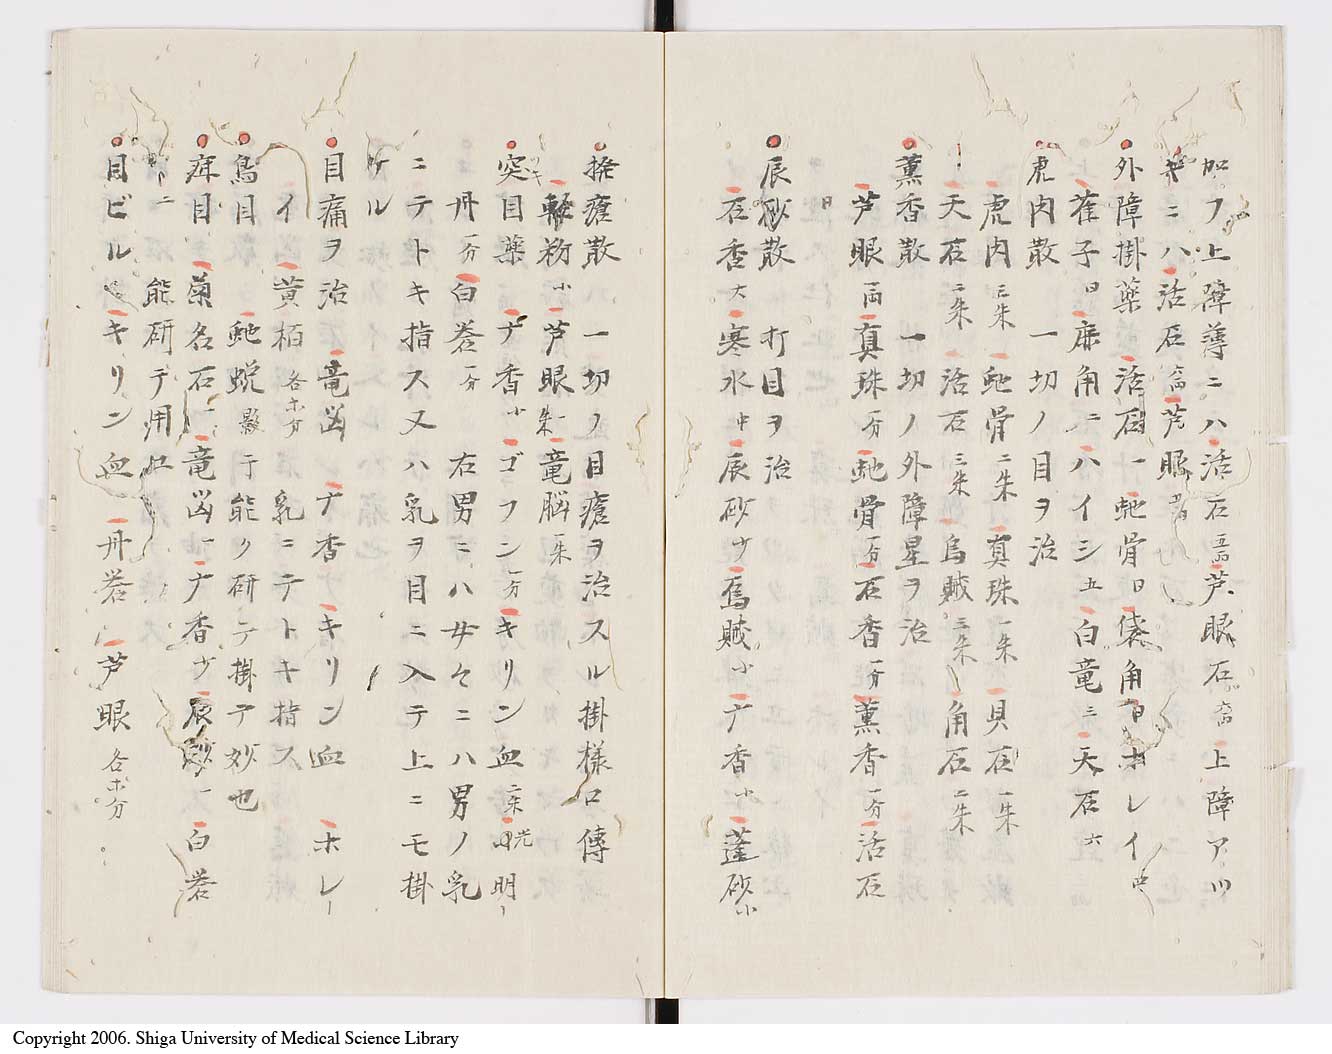 加フ上障薄ニハ活石五両芦眼石六両上障アツ
キニハ活石六両芦眼
外障掛薬 活石一虵骨日袋角日ホレイ中
雀子日麻角ニハイシ五白竜三天石六
虎肉散 一切ノ目ヲ治
虎肉三朱 虵骨二朱真珠一朱貝石一朱
天石二朱活石三朱烏賊三朱角石二朱
薫香散 一切ノ外障星ヲ治
芦眼両真珠一分虵骨一分石香一分薫香一分活石
日
辰砂散 打目ヲ治
石香大寒水中辰砂少烏賊小ナ香小蓬砂小
瘡散 一切ノ目瘡ヲ治スル掛様口傳
軽粉小芦眼一朱竜脳一朱
突目薬 ナ香小ゴフン一分キリン血二朱光明一
丹一分白礬一分 右男ニハ女々ニハ男ノ乳
ニテトキ指ス又ハ乳ヲ目ニ入テ上ニモ掛
ケル
目痛ヲ治 竜凶ナ香キリン血 ホレー
イ黄栢各ホ分乳ニテトキ指ス
鳥目 虵蛻 影干能ク研テ掛テ妙也
痒目 菊名石一竜凶一ナ香少辰砂一白礬
一ニ 能研デ用
目ビル キリン血 丹礬 芦眼 各ホ分
Copyright 2006. Shiga University of Medical Science Library